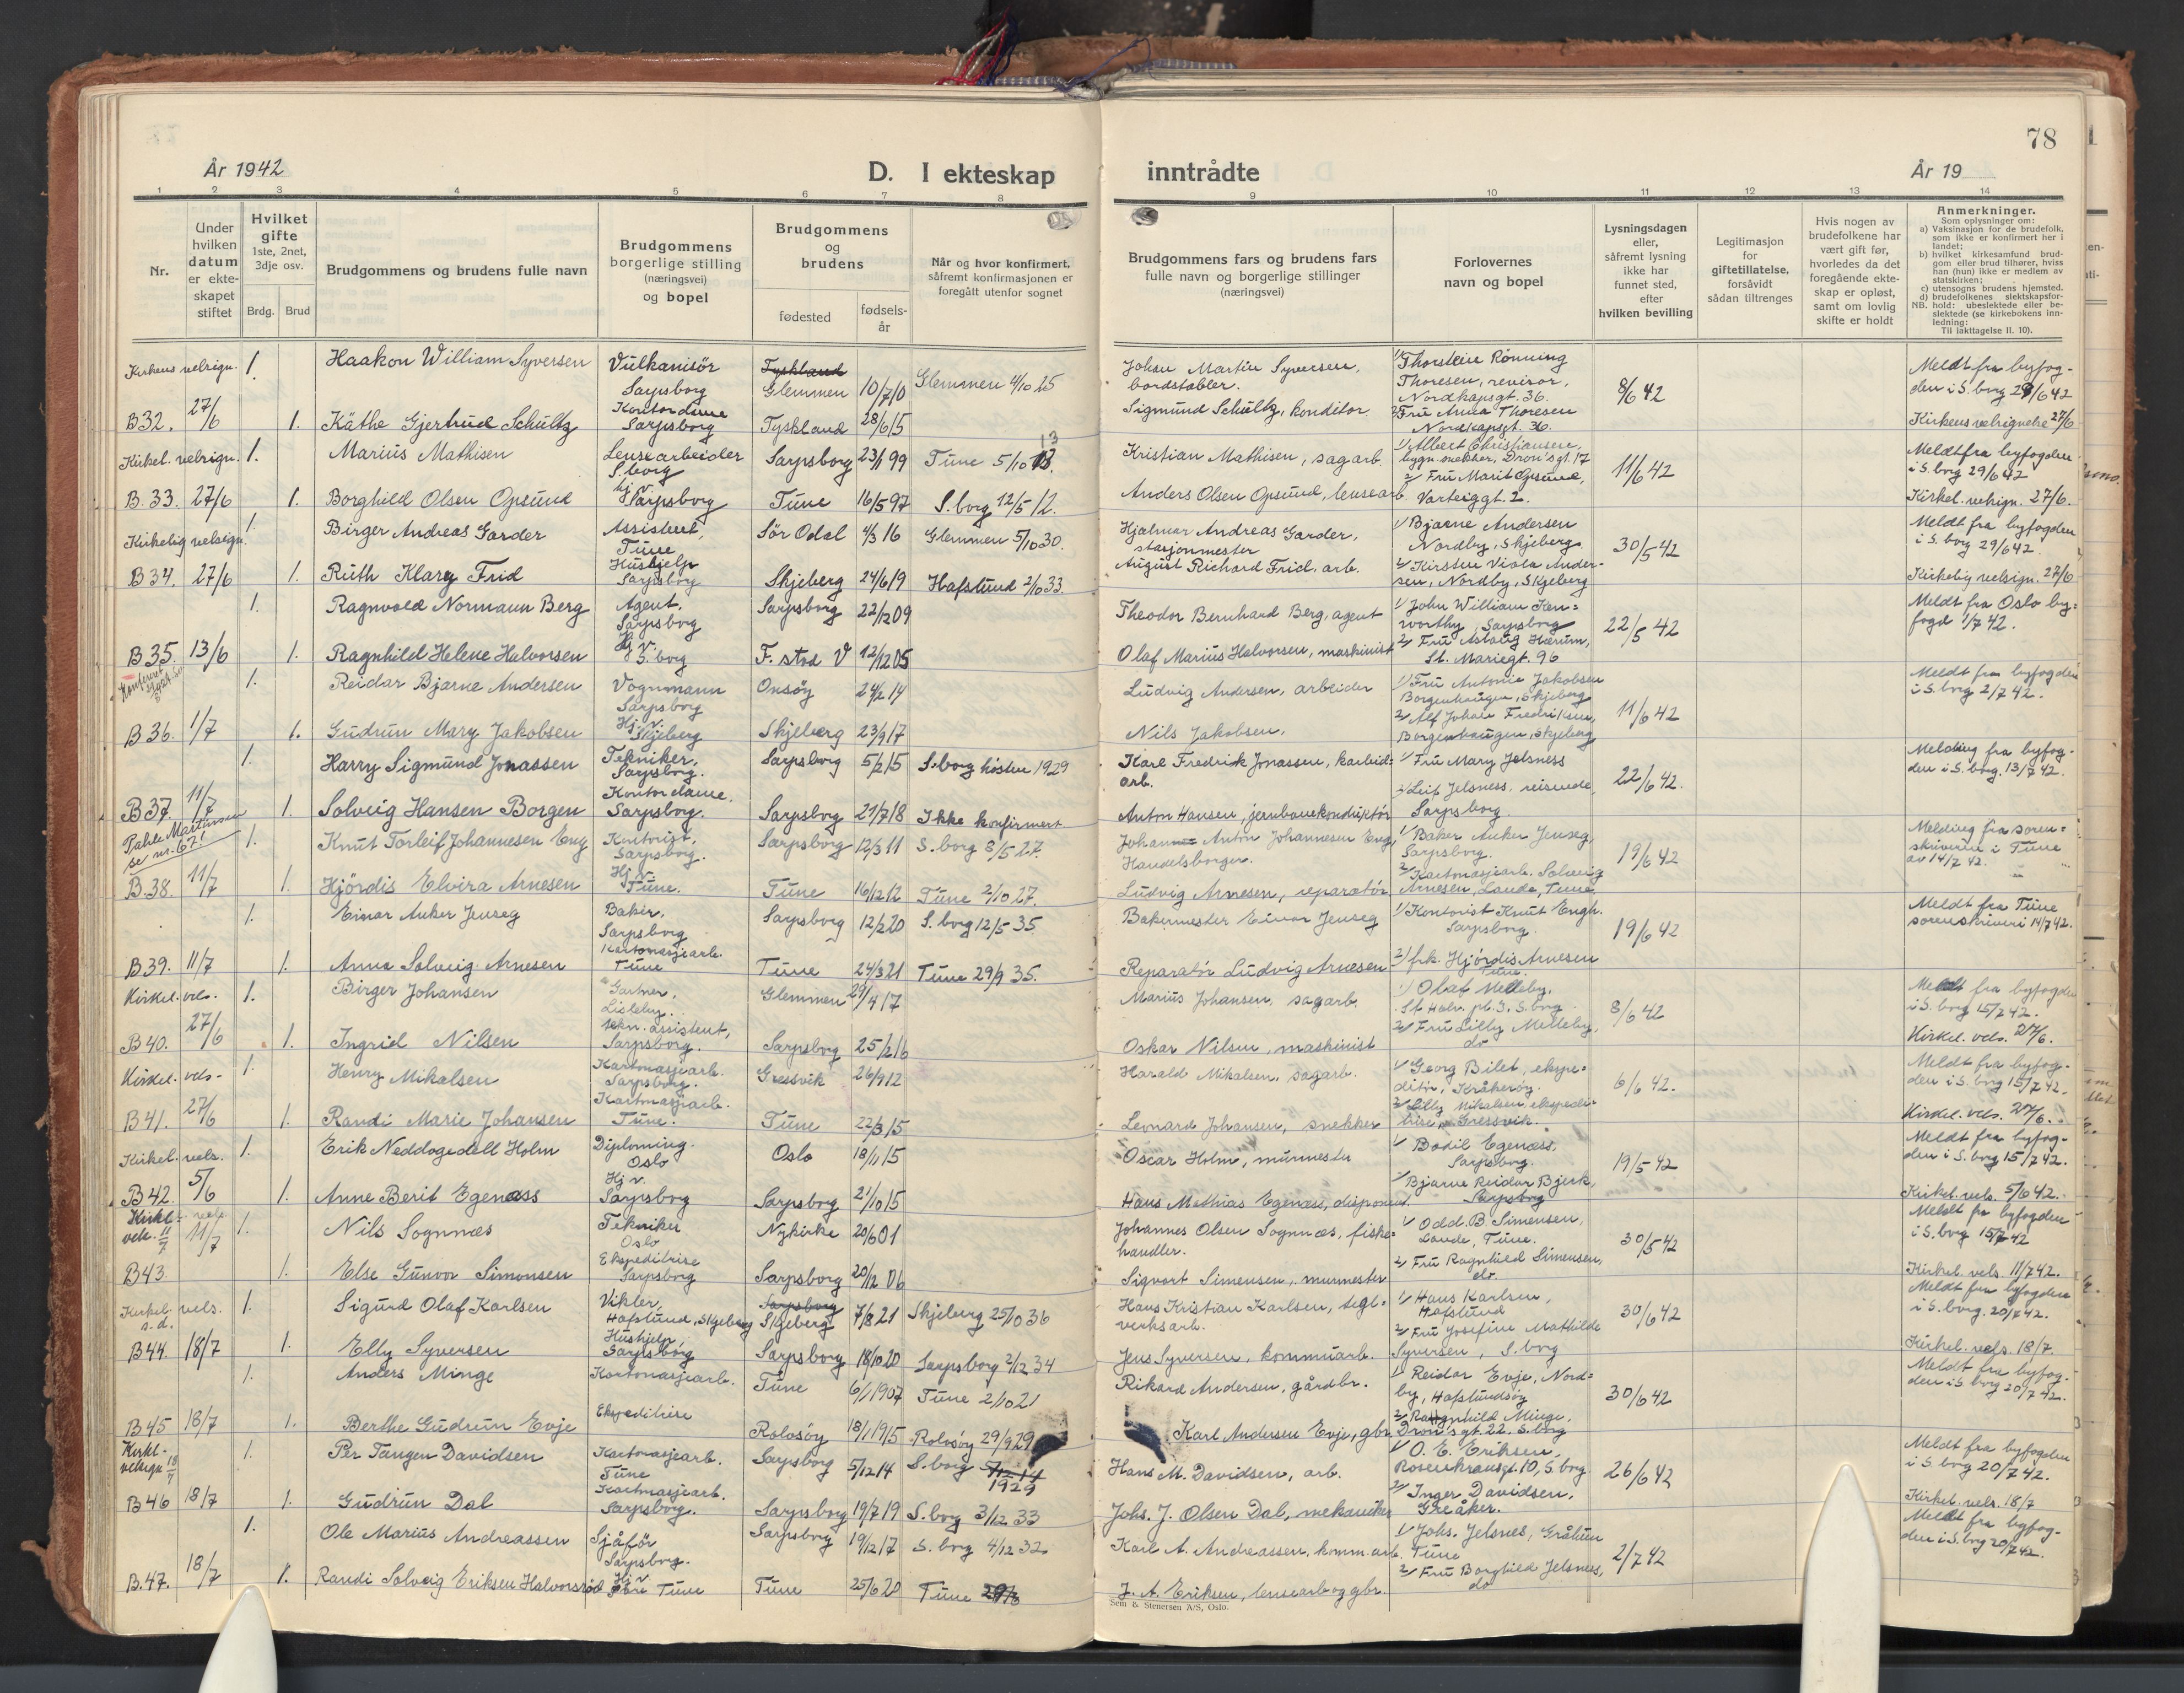 78
År 1942
D. I ekteskap
inntrådte
År 19
1 2 3 4 5 6 7 8 9 10 11 12 13 14
Nr.
Under hvilken datum er ekte-skapet stiftet
Hvilket gifte
1ste, 2net, 3dje osv.
Brdg. Brud
Brudgommens og brudens fulle navn
Brudgommens borgerlige stilling (næringsvei) og bopel
Brudgommens og brudens
fødested
fødsels-år
Når og hvor konfirmert, såfremt konfirmasjonen er foregått utenfor sognet
Brudgommens fars og brudens fars fulle navn og borgerlige stillinger (næringsvei)
Forlovernes navn og bopel
Lysningsdagen eller, såfremt lysning ikke har funnet sted, efter hvilken bevilling
Legitimasjon for giftetillatelse, forsåvidt sådan tiltrenges
Hvis nogen av brudefolkene har vært gift før, hvorledes da det foregående ekte-skap er opløst, samt om lovlig skifte er holdt
Anmerkninger.
Som oplysninger om:
a) Vaksinasjon for de brudefolk, som ikke er konfirmert her i landet;
b) hvilket kirkesamfund brud-gom eller brud tilhører, hviss han (hun) ikke er medlem av statskirken;
c) utensogns brudens hjemsted.
d) brudefolkenes slektskapsfor-hold: ubeslektede eller be-slektede (se kirkebokens inn-ledning:
NB. Til iakttagelse II. 10).
Kirkens velsign. 1. Haakon William Syversen Vulkanisör Sarpsborg Tyskland Glemmen 10/7 10 Glemmen 4/10 25 Johan Martin Syversen, bordstabler. 1/ Thorstein Rönning Thoresen, revisor, Nordkapsgt. 36. 8/6 42 Meldt fra byfog-den i S.borg 29/6 42
B32. 27/6 1. Käthe Gjertrud Schultz Kontordame Sarpsborg Tyskland 28/6 15 Sigmund Schultz, konditor 2/ Fru Anna Thoresen Nordkapsgt. 36. Kirkens velsignelse 27/6
Kirkel. velsign. 1. Marius Mathisen Lensearbeider S borg Sarpsborg 23/1 99 Tune 5/10 13 Kristian Mathisen, sagarb. 1/ Albert Christiansen, bygn.snekker, Dron's gt. 17 11/6 42 Meldt fra byfogden i S. borg 29/6 42
B. 33. 27/6 1. Borghild Olsen Opsund Hj. v. Sarpsborg Tune 16/5 97 S. borg 12/5 12. Anders Olsen Opsund, lensearb. 2/ Fru Marit Opsund, Varteiggt. 2. Kirkel. velsign. 27/6.
Kirkelig velsign. 1. Birger Andreas Garder Assistent, Tune Sör Odal 4/3 16 Glemmen 5/10 30. Hjalmar Andreas Garder, stasjonmester 1/ Bjarne Andersen Nordby, Skjeberg 30/5 42 Meldt fra byfogden i S. borg 29/6 42.
B 34. 27/6 1. Ruth Klary Frid Hushjelp Sarpsborg Skjeberg 24/6 19 Hafslund 2/10 33. August Richard Frid, arb. 2/ Kirsten Viola Ander-sen, Nordby, Skjeberg Kirkelig velsign. 27/6
1. Ragnvald Normann Berg Agent, Sarpsborg Sarpsborg 22/12 09 Theodor Bernhard Berg, agent 1/ John William Ken=worthy, Sarpsborg 22/5 42 Meldt fra Oslo by=fogd 1/7 42.
B 35. 13/6 1. Ragnhild Helene Halvorsen S. borg F. stad V 12/12 05 Olaf Marius Halvorsen, maskinist 2/ Fru Aslaug Hærum, St. Mariegt. 96
1. Reidar Bjarne Andersen Vognmann Sarpsborg Onsöy 24/2 14 Ludvig Andersen, arbeider 1/ Fru Antonie Jakobsen Borgenhaugen, Skjeberg 11/6 42 Meldt fra byfogden i S. borg 2/7 42.
B 36. 1/7 1. Gudrun Mary Jakobsen Hj. v. Skjeberg Skjeberg 23/9 17 Nils Jakobsen, 2/ Alf Johan Fredriksen, Borgenhaugen, Skjeberg
1. Harry Sigmund Jonassen Tekniker, Sarpsborg. Sarpsborg 5/2 15 S.borg hösten 1929 Karl Fredrik Jonassen, karbid=arb. 1/ Fru Mary Jelsness 22/6 42. Melding fra byfog-den i S. borg. 13/7 42.
B 37. 11/7 1. Solveig Hansen Borgen Kontordame, Sarpsborg. Sarpsborg 21/7 18 Ikke konfirmert Anton Hansen, jernbanekonduktör 2/ Leif Jelsness, reisende, Sarpsborg
Pahle Martinsen se nr. 67! 1. Knut Torleif Johannesen Eng Kontorist, Sarpsborg. Sarpsborg 12/3 11 S. borg 8/5 27. Johan Anton Johannesen Eng, Handelsborger. 1/ Baker Anker Jenseg, Sarpsborg. 19/6 42 Melding fra soren=skriveren i Tune av 14/7 42.
B. 38. 11/7 1. Hjördis Elvira Arnesen Hj. v. Tune. Tune 16/12 12 Tune 2/10 27. Ludvig Arnesen, reparatör 2/ Kartonasjearb. Solveig Arnesen, Lande, Tune
1. Einar Anker Jenseg Baker, Sarpsborg Sarpsborg 12/2 20 S. borg 12/5 35. Bakermester Einar Jenseg 1/ Kontorist Knut Engh. Sarpsborg. 19/6 42 Meldt fra Tune sorenskriveri 14/7 42.
B 39. 11/7 1. Anna Solveig Arnesen Kartonasjearb. Tune Tune 24/3 21 Tune 29/9 35. Reparatör Ludvig Arnesen 2/ frk. Hjördis Arnesen Tune.
Kirkel. vels. 1. Birger Johansen Gartner, Lisleby. Glemmen 29/4 17 Marius Johansen, sagarb. 1/ Olaf Melleby, St. Halv. pl. 3, S. borg 8/6 42 Meldt fra byfogden i S. borg 15/7 42.
B 40. 27/6 1. Ingrid Nilsen tekn. assistent, Sarpsborg. Sarpsborg 25/2 16 Oskar Nilsen, maskinist 2/ Fru Lilly Melleby, do Kirkel. vels. 27/6.
Kirkel. vels. 1. Henry Mikalsen Kartonasjearb. Sarpsborg. Gressvik 26/9 12 Harald Mikalsen, sagarb. 1/ Georg Bilet, ekspe=ditör, Kråkeröy. 6/6 42. Meldt fra byfog-den i S. borg 15/7 42.
B 41. 27/6 1. Randi Marie Johansen Kartonasjearb. Tune. Tune 22/3 15 Leonard Johansen, snekker 2/ Lilly Mikalsen, ekspedi=trise, Gressvik. Kirkel. vels. 27/6.
Kirkel. vels. 1. Erik Neddogedell Holm Diploming. Oslo Oslo 18/11 15 Oscar Holm, murmester 1/ Bodil Egenæss, Sarpsborg. 19/5 42 Meldt fra byfog-den i S. borg 15/7 42.
B 42. 5/6 1. Anne Berit Egenæss Hj v. Sarpsborg Sarpsborg 21/10 15 Hans Mathias Egenæss, disponent. 2/ Bjarne Reidar Bjerk, Sarpsborg Kirkel. vels. 5/6 42.
Kirkl. vels. 11/7 11/7 1. Nils Sognnæs Tekniker Oslo Nykirke 20/6 01 Johannes Olsen Sognnæs, fiske=handler. 1/ Odd. B. Simensen, Lande, Tune. 30/5 42 Meldt fra byfogden i S. borg 15/7 42
B 43. 1. Else Gunvor Simonsen Ekspeditrise Sarpsborg Sarpsborg 20/12 06 Sigvart Simensen, murmester 2/ Fru Ragnhild Simensen, do. Kirkel. vels. 11/7 42.
Kirkel. vels. s. d. 1. Sigurd Olaf Karlsen Vikler, Hafslund, Skjeberg Sarpsborg Skjeberg 7/8 21 Skjeberg 25/10 36 Hans Kristian Karlsen, tegl=verksarb. 1/ Hans Karlsen, Hafslund 30/6 42 Meldt fra byfogden i S. borg. 20/7 42.
B 44. 18/7 1. Elly Syversen Hushjelp, Sarpsborg Sarpsborg 18/10 20 Sarpsborg 2/12 34 Jens Syversen, kommunarb. 2/ Fru Josefine Mathilde Syversen, S. borg Kirkel. vels. 18/7.
1. Anders Minge Kartonasjearb. Tune 6/1 1907 Tune 2/10 21 Rikard Andersen, gårdbr. 1/ Reidar Evje, Nord=by, Hafslundsöy 30/6 42 Meldt fra byfog-den i S. borg 20/7 42.
B 45 18/7 1. Berthe Gudrun Evje Ekspeditrise Rolvsöy 18/1 1915 Rolvsöy 29/9 29 Karl Andersen Evje, gbr. 2/ Ragnhild Minge, Dron's gt. 22. S. borg
Kirkl. velsign 18/7 1. Per Tangen Davidsen Kartonasjearb. Tune Sarpsborg 5/12 14 S. borg 5/12 14 1929 Hans M. Davidsen, arb. 1/ O. E. Eriksen, Rosenkransgt. 10, S. borg 26/6 42 Meldt fra byfogden i S. borg 20/7 42.
B 46 18/7 1. Gudrun Dal Kartonasjearb. Sarpsborg. Sarpsborg 19/7 19 S. borg 3/12 33 Johs. J. Olsen Dal, mekaniker 2/ Inger Davidsen, Greåker. Kirkel. vels. 18/7
1. Ole Marius Andreassen Sjåför Sarpsborg. Sarpsborg 19/12 17 S. borg 4/12 32. Karl A. Andreassen, komm.arb. 1/ Johs. Jelsnes, Grålum Tune 2/7 42 Meldt fra byfog-den i S. borg 20/7 42.
B. 47. 18/7 1. Randi Solveig Eriksen Halvorsröd Hj v. Tune Tune 25/6 20 Tune 29/6 J. A. Eriksen, lensearb og gbr. 2/ Fru Borghild Jelsnes, do
Sem & Stenersen A/S, Oslo.